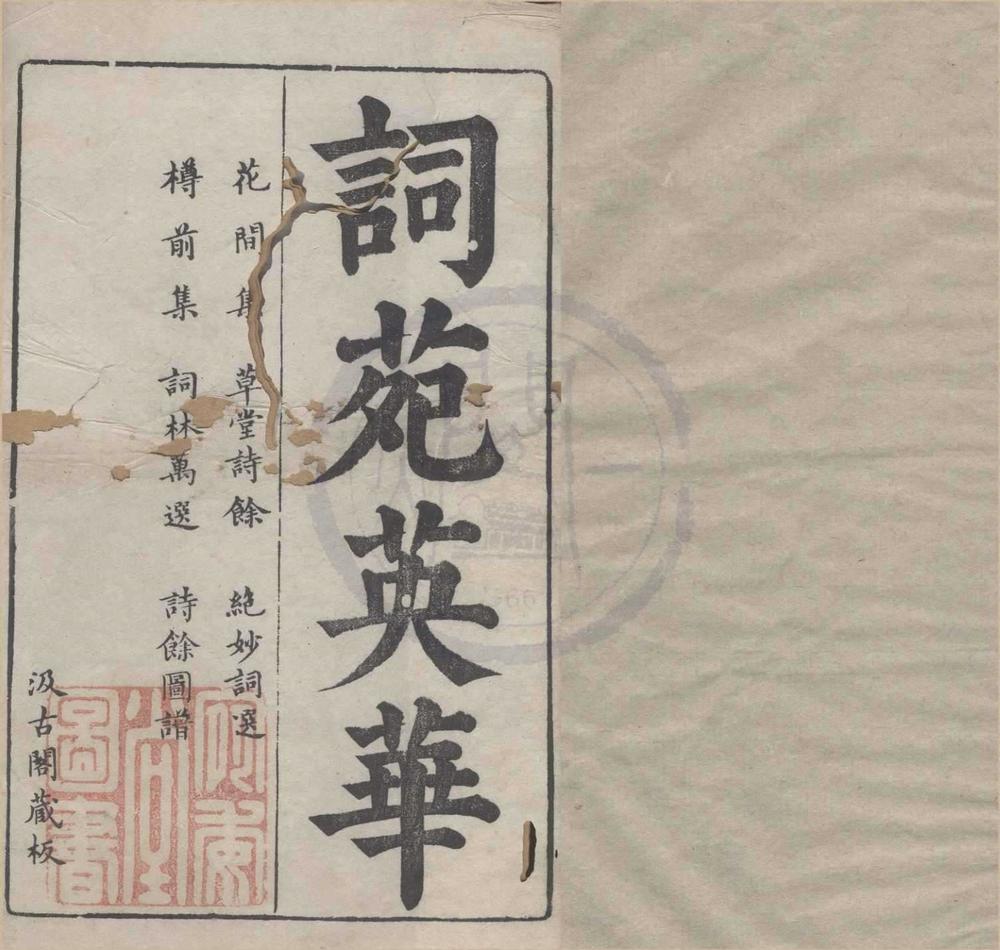 詞苑英華
花間集 草堂詩餘 絶妙詞選
樽前集 詞林萬選 詩餘圖譜
汲古閣藏板